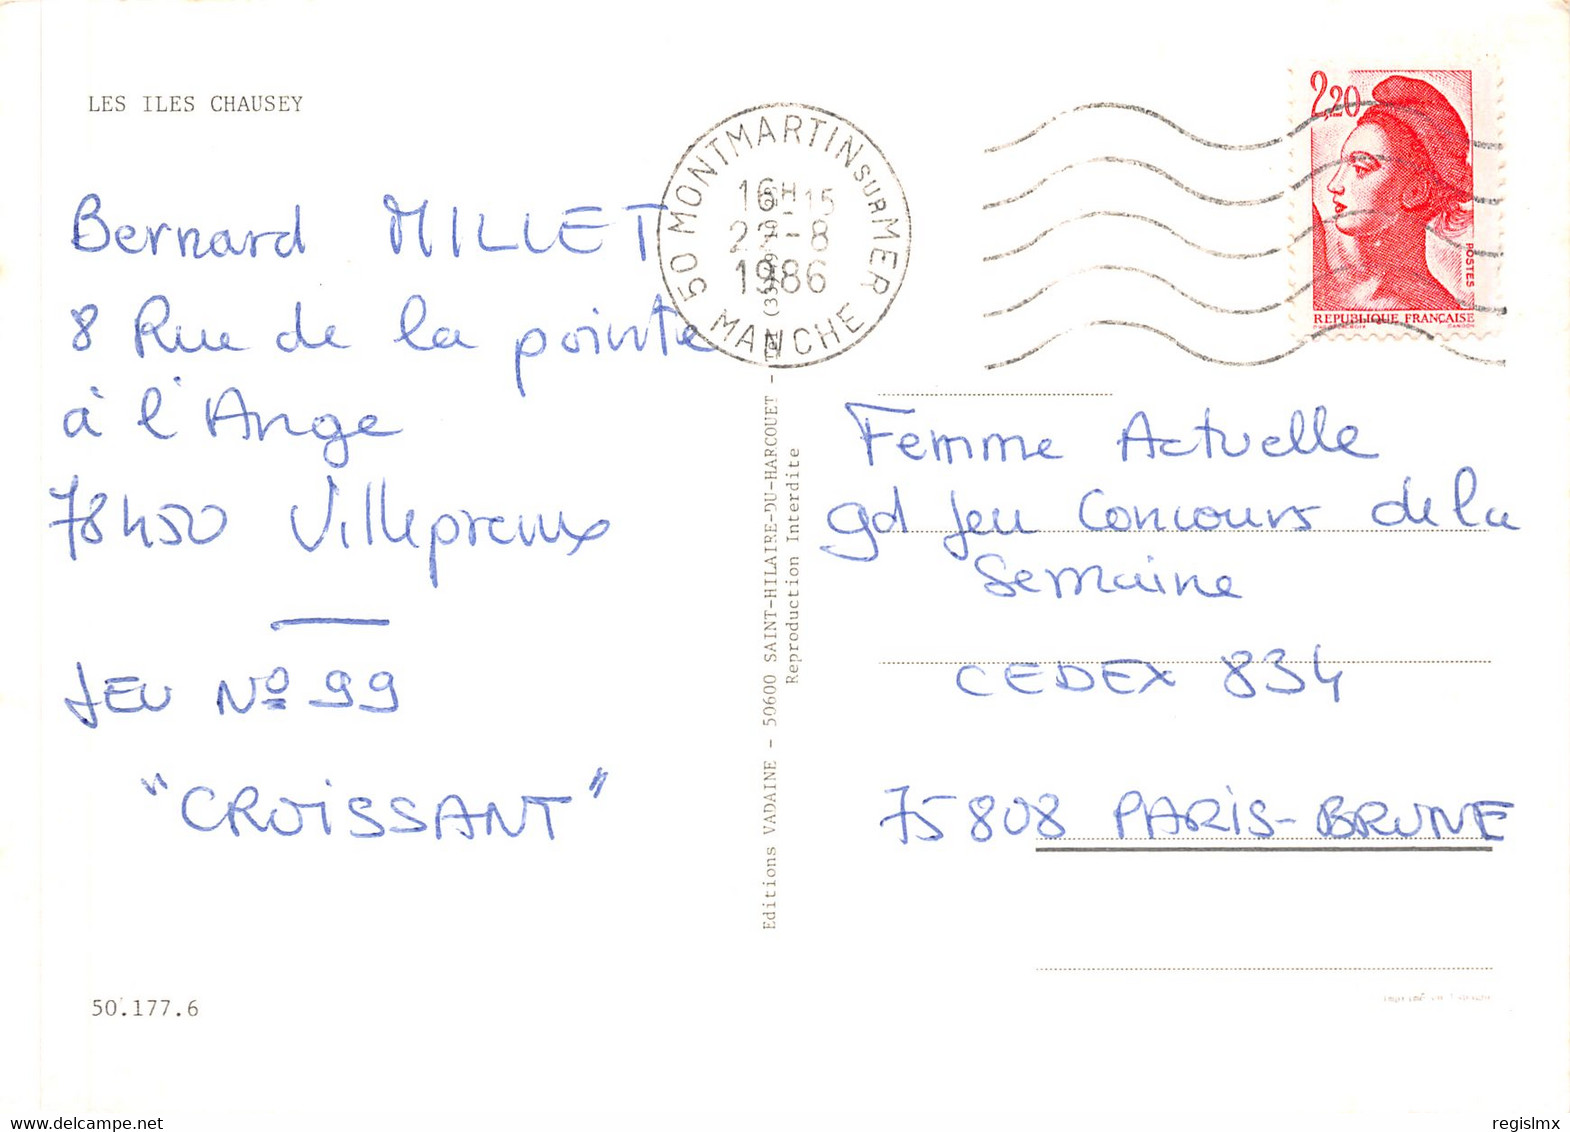 LES ILES CHAUSEY
Bernard MILLET
8 Rue de la pointe
à l'Ange
78450 Villepreux
JEU Nº 99
"CROISSANT"
50.177.6
50 MONTMARTIN SUR MER
16H15
1986
MANCHE
Editions VADAINE - 50600 SAINT-HILAIRE-DU-HARCOUET -
Reproduction Interdite
2,20
POSTES
REPUBLIQUE FRANÇAISE
Femme Actuelle
gd Jeu Concours de la
Semaine
CEDEX 834
75808 PARIS-BRUNE
regislmx